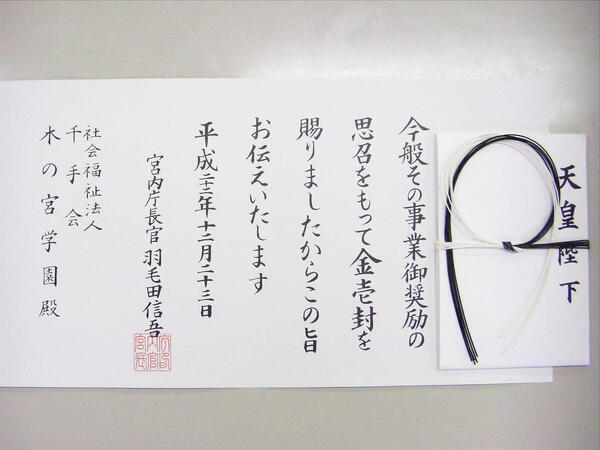 天皇陛下
今般その事業御奨励の
思召をもって金壱封を
賜りましたからこの旨
お伝えいたします
平成二十二年十二月二十三日
宮内庁長官 羽毛田信吾
社会福祉法人
千手会
木の宮学園殿